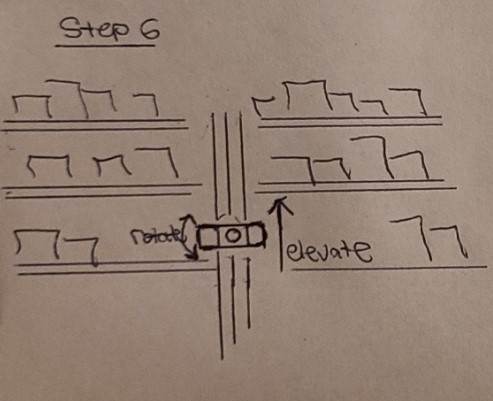 Step 6
rotate
elevate